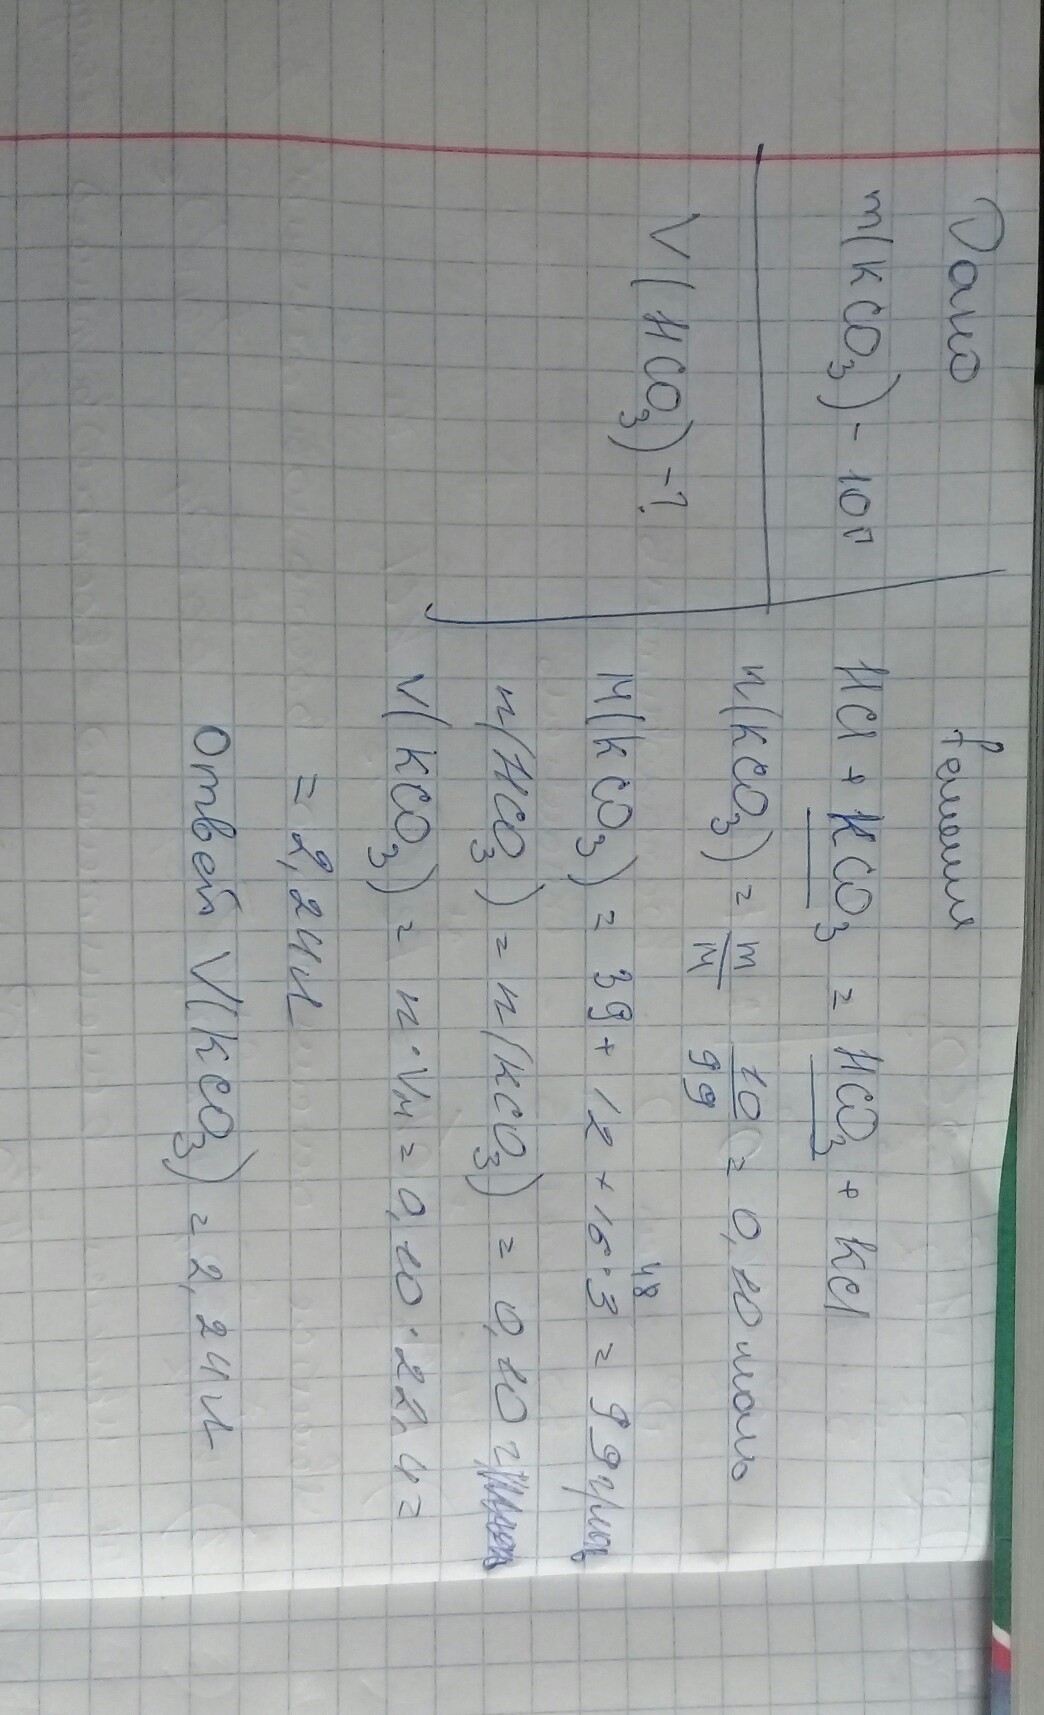 Дано
m(KCO3) - 10г
V(HCO3) - ?
Решения
HCl + KCO3 = HCO3 + KCl
n(KCO3) = m/M 10/99 = 0,10 моль
48
M(KCO3) = 39 + 12 + 16·3 = 99 г/моль
n(HCO3) = n(KCO3) = 0,10
V(KCO3) = n·Vм = 0,10·22,4 =
= 2,24л
Ответ V(KCO3) = 2,24л